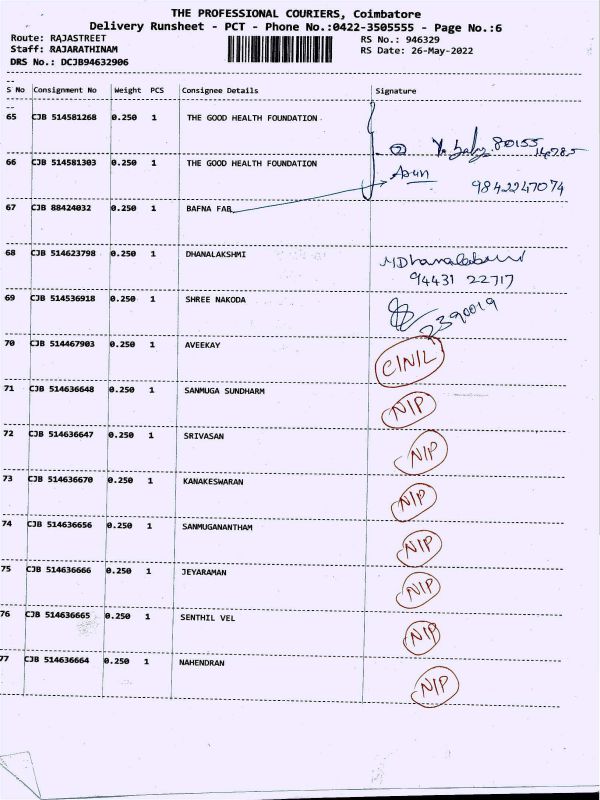 THE PROFESSIONAL COURIERS, Coimbatore
Delivery Runsheet - PCT - Phone No.:0422-3505555 - Page No.:6
Route: RAJASTREET RS No.: 946329
Staff: RAJARATHINAM RS Date: 26-May-2022
DRS No.: DCJB94632906
S No Consignment No Weight PCS Consignee Details Signature
65 CJB 514581268 0.250 1 THE GOOD HEALTH FOUNDATION
66 CJB 514581303 0.250 1 THE GOOD HEALTH FOUNDATION
9842247074
67 CJB 88424032 0.250 1 BAFNA FAB
68 CJB 514623798 0.250 1 DHANALAKSHMI
94431 22717
69 CJB 514536918 0.250 1 SHREE NAKODA 2390019
70 CJB 514467903 0.250 1 AVEEKAY C/N/L
71 CJB 514636648 0.250 1 SANMUGA SUNDHARM N/P
72 CJB 514636647 0.250 1 SRIVASAN N/P
73 CJB 514636670 0.250 1 KANAKESWARAN N/P
74 CJB 514636656 0.250 1 SANMUGANANTHAM N/P
75 CJB 514636666 0.250 1 JEYARAMAN N/P
76 CJB 514636665 0.250 1 SENTHIL VEL N/P
77 CJB 514636664 0.250 1 NAHENDRAN N/P